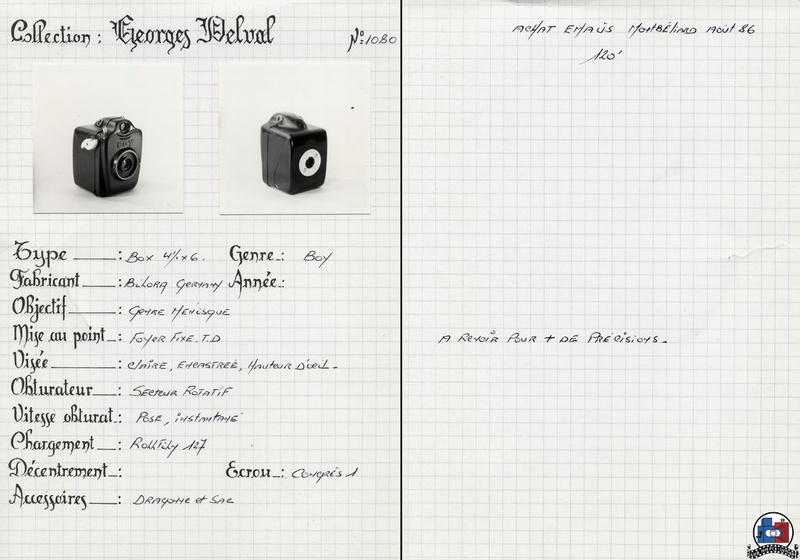 Collection : Georges Delval
N° 1080
BOY
Type : Box 4½x6. Genre : Boy
Fabricant : Bilora Germany Année :
Objectif : Genre Ménisque
Mise au point : Foyer Fixe. T.D
Visée : Claire, Encastrée, Hauteur d'œil.
Obturateur : Secteur Rotatif
Vitesse obturat : Pose, instantané
Chargement : Rollfilm 127
Décentrement : Ecrou : Congrès 1
Accessoires : Dragonne et Sac
Achat Emaüs Montbéliard Août 86
120ᶠ
A Revoir Pour + de Précisions.